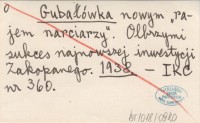 0 Gubałówka nowym „ra-
jem narciarzy". Olbrzymi
sukces najnowszej inwestycji
Zakopanego. 1938 – IKC
nr 360.